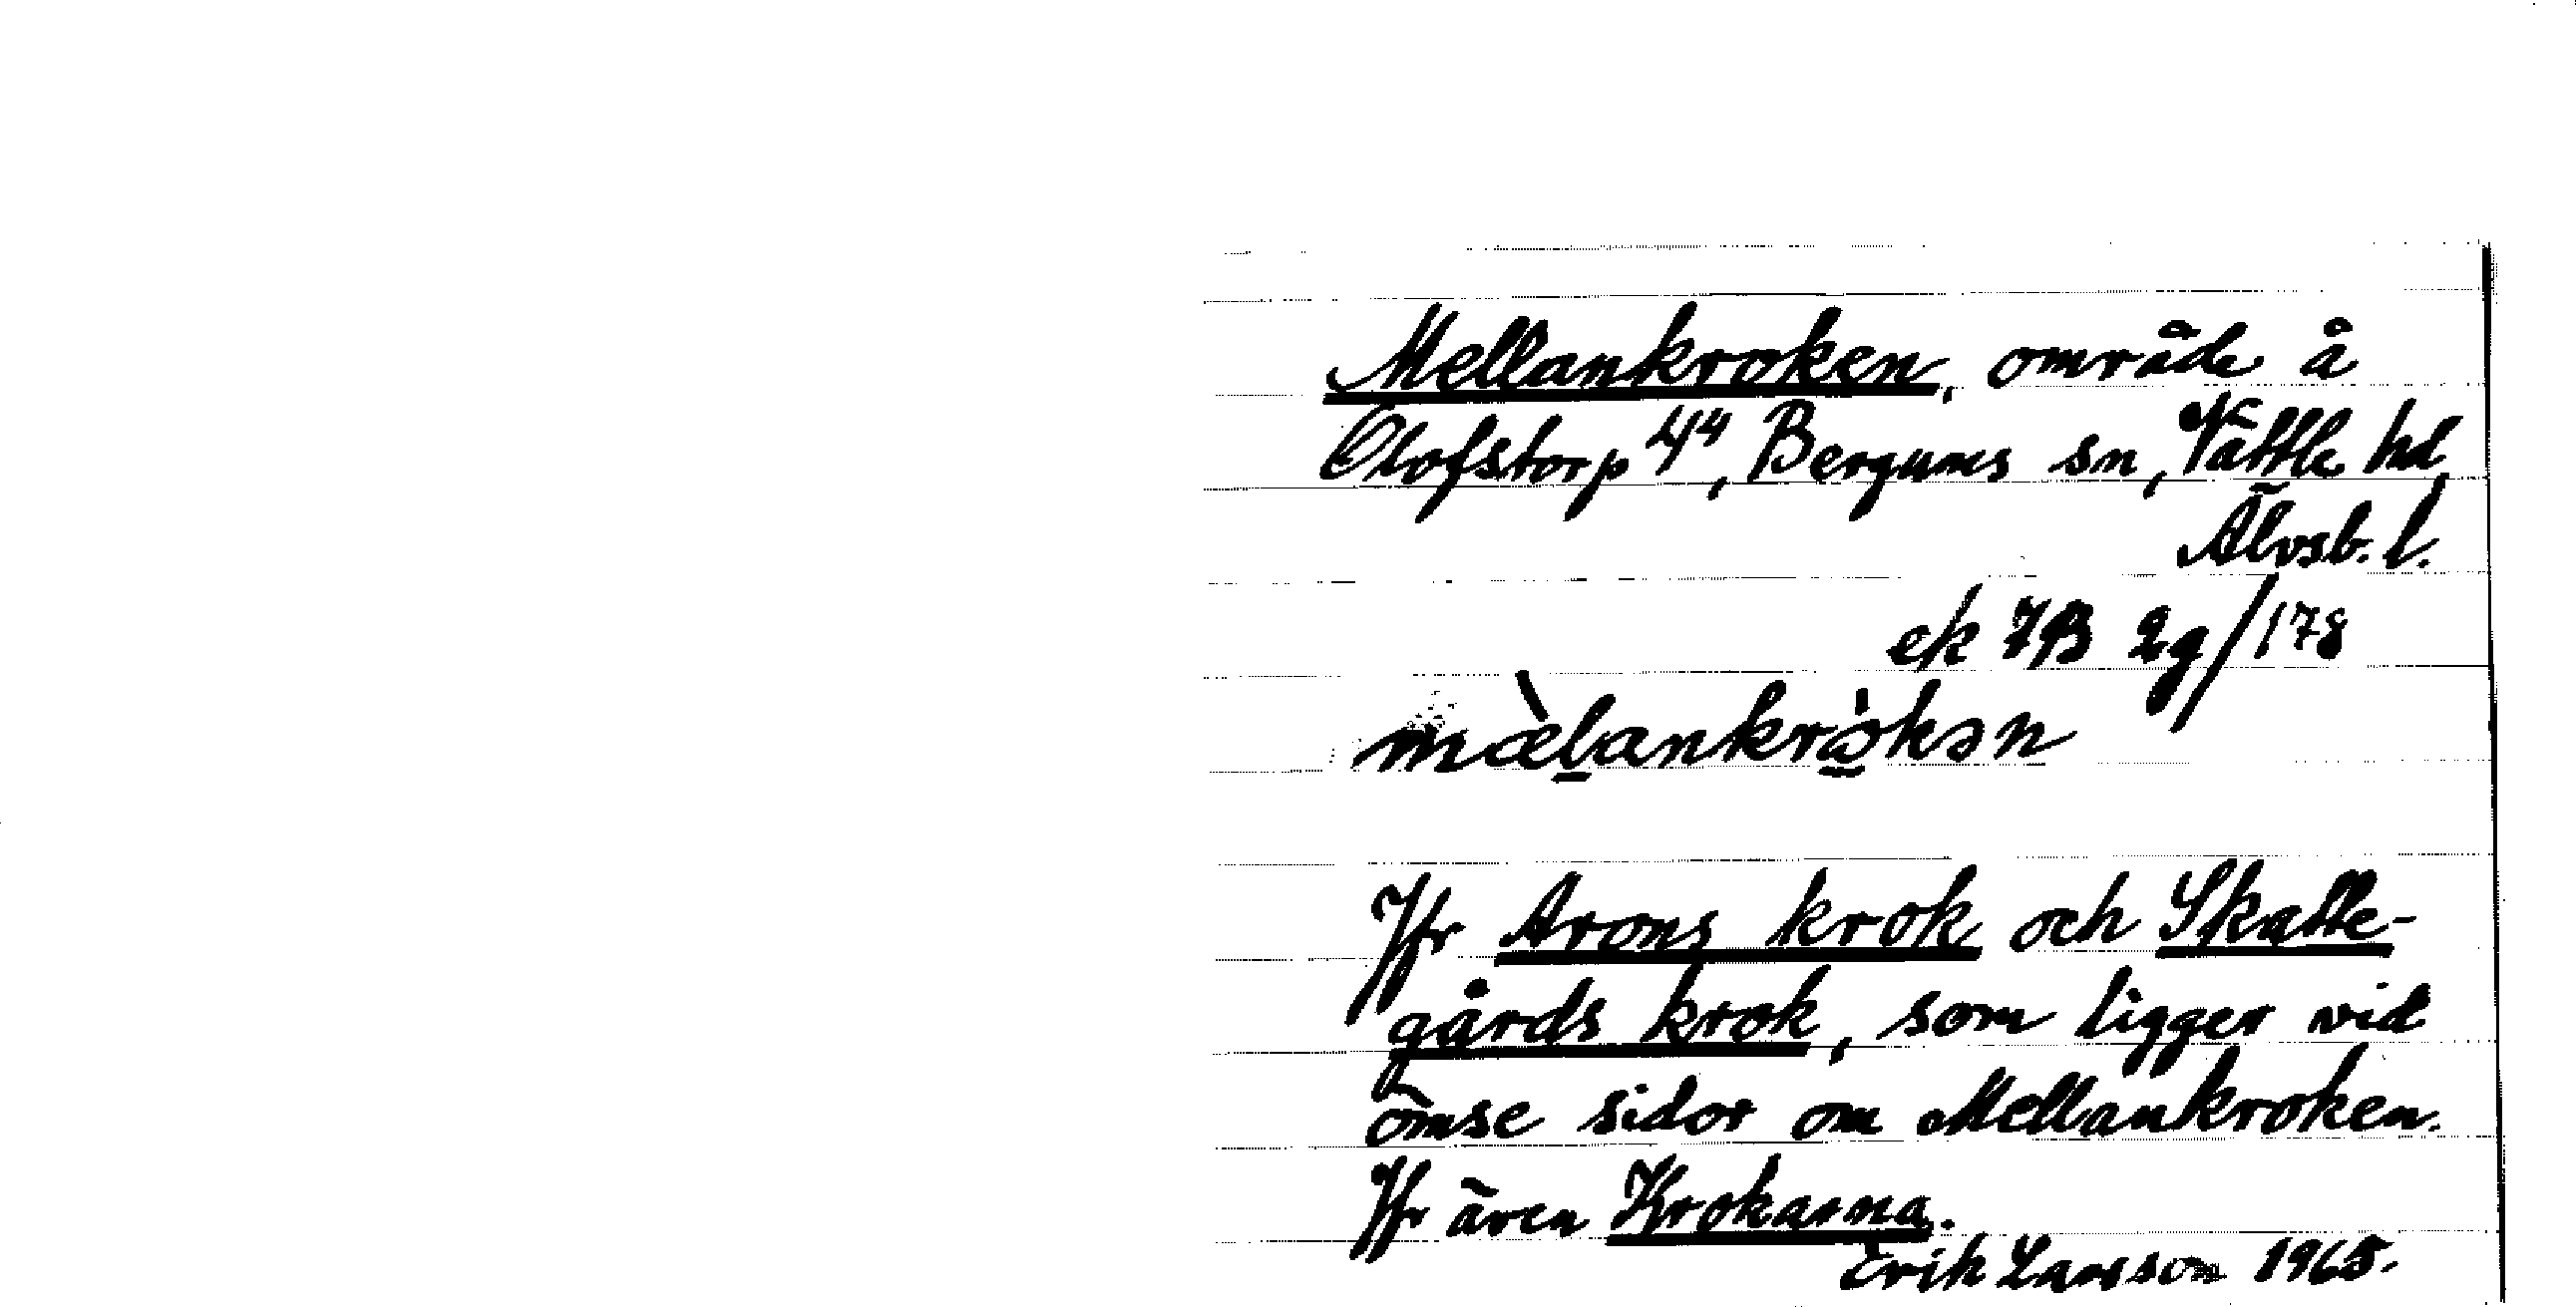 Mellankroken, område å
Olofstorp 4⁴, Bergums sn, Vättle hd
Älvsb. l.
ek 7B 2g/178
mæ̀l̠ankrὰ̠kən
Jfr Arons krok och Skatte-
gårds krok, som ligger vid
ömse sidor om Mellankroken.
Jfr även Krokarna.
Erik Larsson 1965.